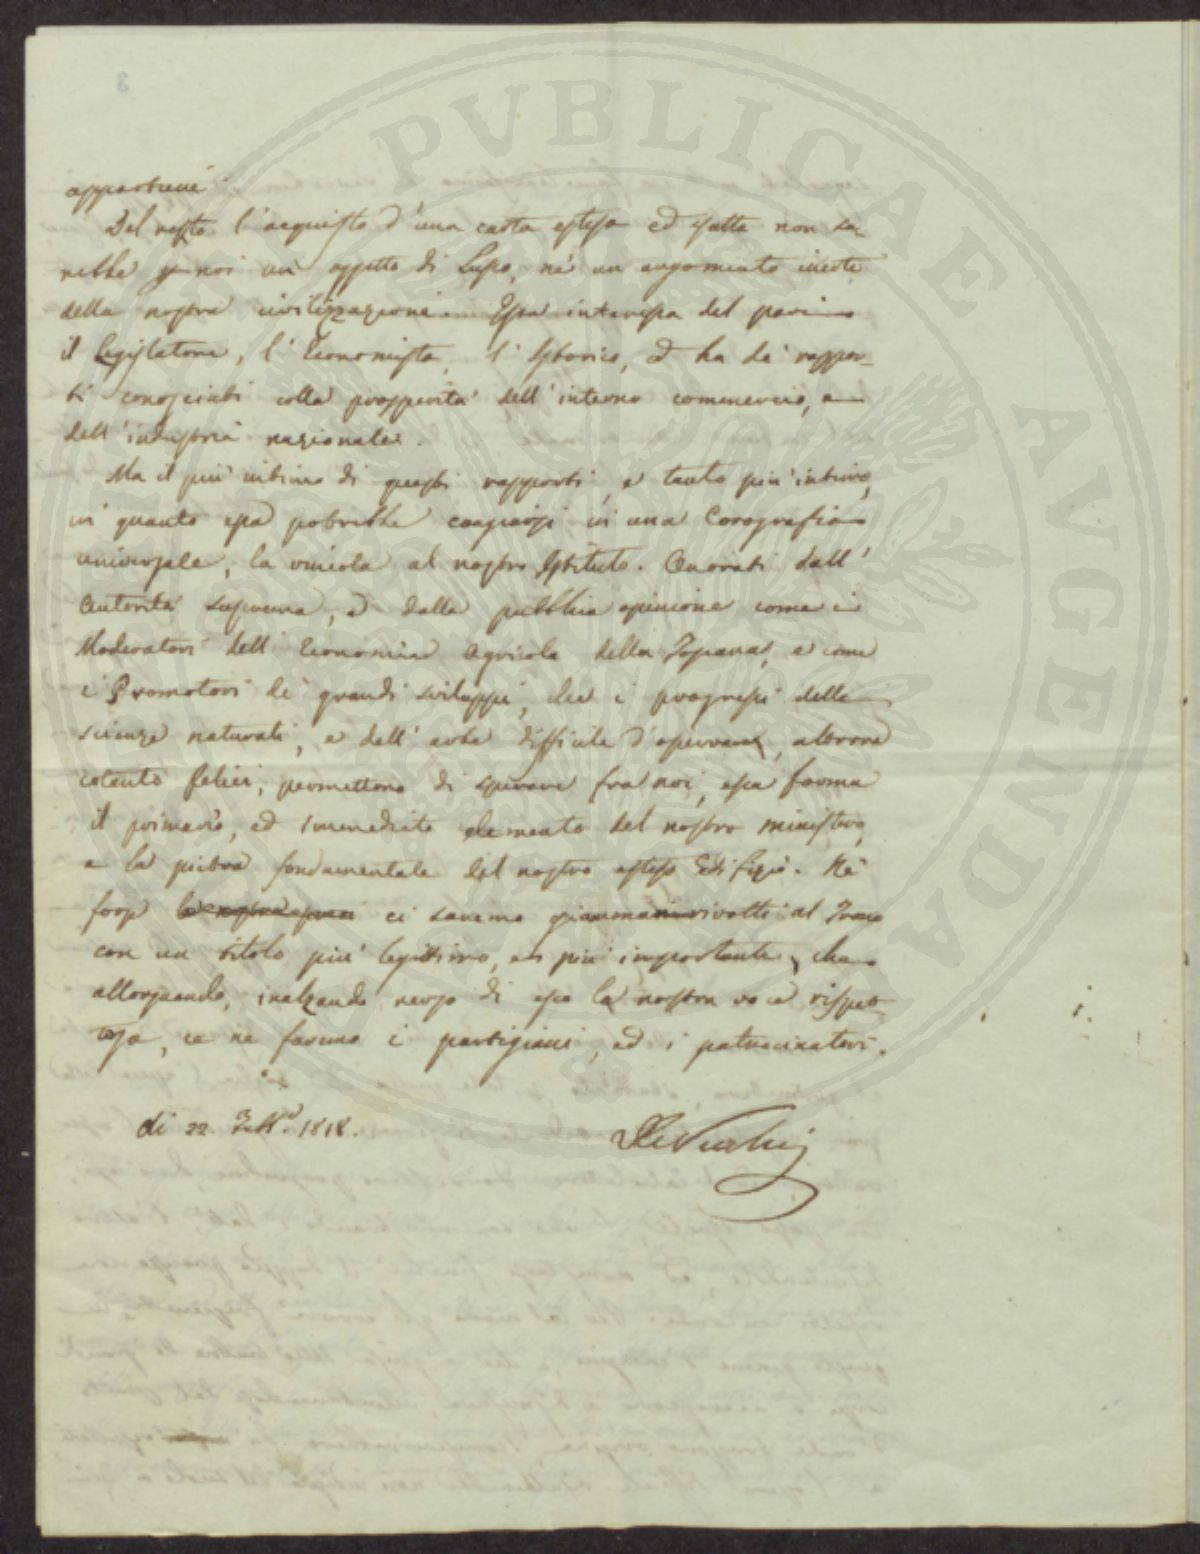 PVBLICAE AVGENDA
3
appartiene.
Del resto l'acquisto d'una carta estesa ed esatta non sa-
rebbe per noi un oggetto di Lusso, nè un argomento inerte
della nostra civilizzazione. Essa interessa del pari
il Legislatore, l'Economista, l'Istorico, ed ha de' rappor-
ti conosciuti colla prosperità dell'interno commercio, e
dell'industria nazionale.
Ma il più intimo di questi rapporti, e tanto più intimo,
in quanto essa potrebbe cangiarsi in una Corografia
universale, la vincola al nostro Istituto. Onorati dall'
Autorità suprema, e dalla pubblica opinione come i
Moderatori dell'Economia Agricola della Toscana, e come
i Promotori de' grandi sviluppi, che i progressi delle
scienze naturali, e dell'arte difficile d'osservare, altrove
cotanto felici, permettono di sperare fra noi, essa forma
il primario, ed immediato elemento del nostro ministero,
e la pietra fondamentale del nostro esteso Edifizio. Nè
forse ci saremo giammai rivolti al Trono
con un titolo più legittimo, e più importante, che
allorquando, inalzando verso di esso la nostra voce rispet-
tosa, ce ne faremo i partigiani, ed i patrocinatori.
di 22. 1818.